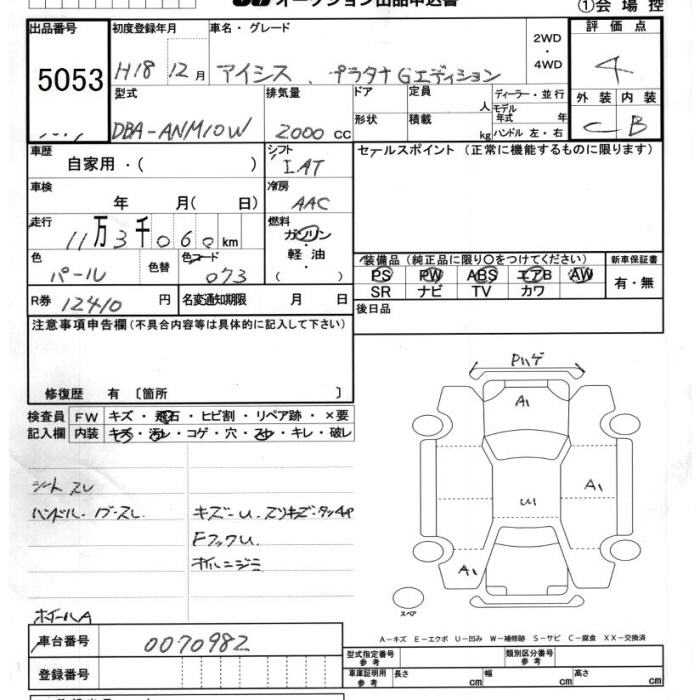 オークション出品申込書
①会場控
出品番号 初度登録年月 車名・グレード 2WD・4WD 評価点
5053 H18 12月 アイシス プラタナGエディション 4
型式 排気量 ドア 定員 人 ディーラー・並行 外装 内装
DBA-ANM10W 2000cc 形状 積載 kg モデル年式 年 ハンドル 左・右 C B
車歴 シフト セールスポイント(正常に機能するものに限ります)
自家用・( ) IAT
車検 冷房
年 月( 日) AAC
走行 燃料
11万3千060km ガソリン・軽油・( )
色 色替 色コード 装備品(純正品に限り○をつけてください) 新車保証書
パール 073 PS PW ABS エアB AW 有・無
SR ナビ TV カワ
R券 12410円 名変通知期限 月 日 後日品
注意事項申告欄(不具合内容等は具体的に記入して下さい)
修復歴 有 〔箇所 〕
検査員 FW キズ・飛石・ヒビ割・リペア跡・×要
記入欄 内装 キズ・汚レ・コゲ・穴・スレ・キレ・破レ
Pハゲ
A1
シートスレ
A1
ハンドル・ノブスレ キズ-U.スリキズ・タッチP
U
FフックU
オイルニジミ
A1
スペア
ホイールA
A-キズ E-エクボ U-凹み W-補修跡 S-サビ C-腐食 XX-交換済
車台番号 0070982
型式指定番号 参考 類別区分番号 参考
登録番号 車庫証明用 参考 長さ cm 幅 cm 高さ cm